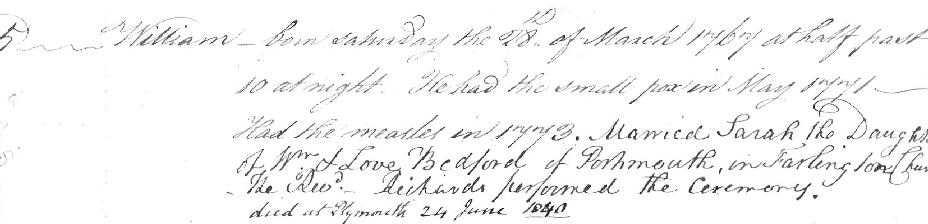 5 William - born saturday the 28th of March 1767 at half past
10 at night. He had the small pox in May 1771
Had the measles in 1773. Married Sarah the Daught
of Wm & Love Bedford of Portsmouth, in Farlington Chur
The Revd - Richards performed the Ceremony.
died at Plymouth 24 June 1840